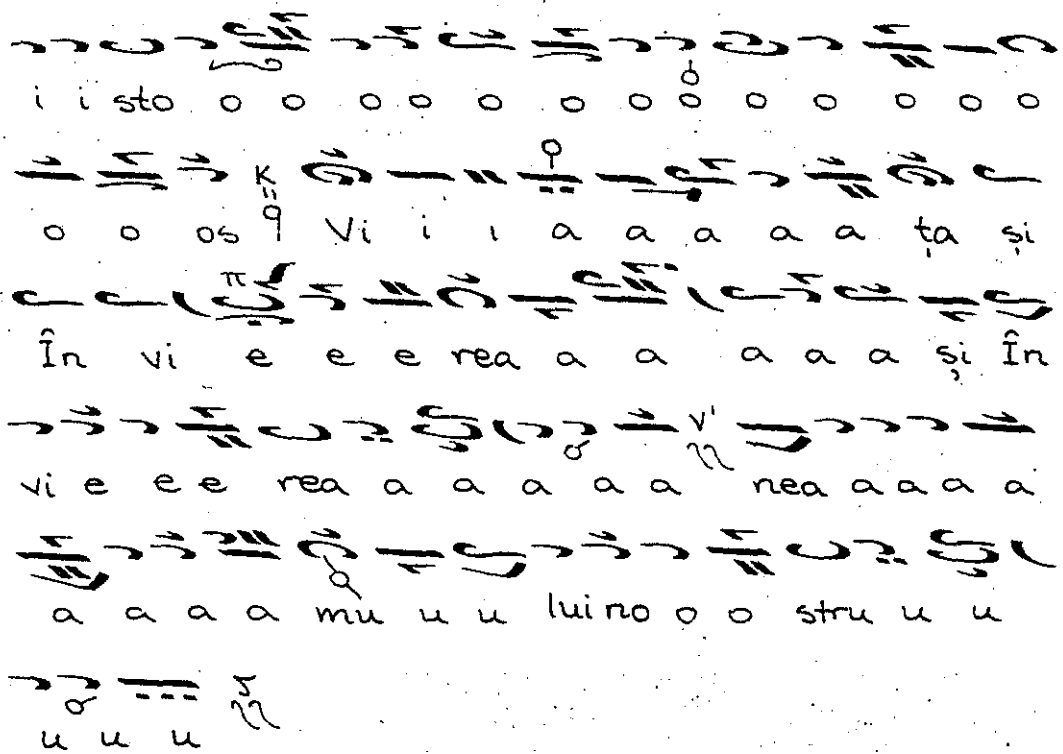 i i sto o o o o o o o o o o o o o
o o os Vi i ı a a a a a ța și
În vi e e e rea a a a a a și În
vi e e e rea a a a a a nea a a a a
a a a a mu u u lui no o o stru u u
u u u